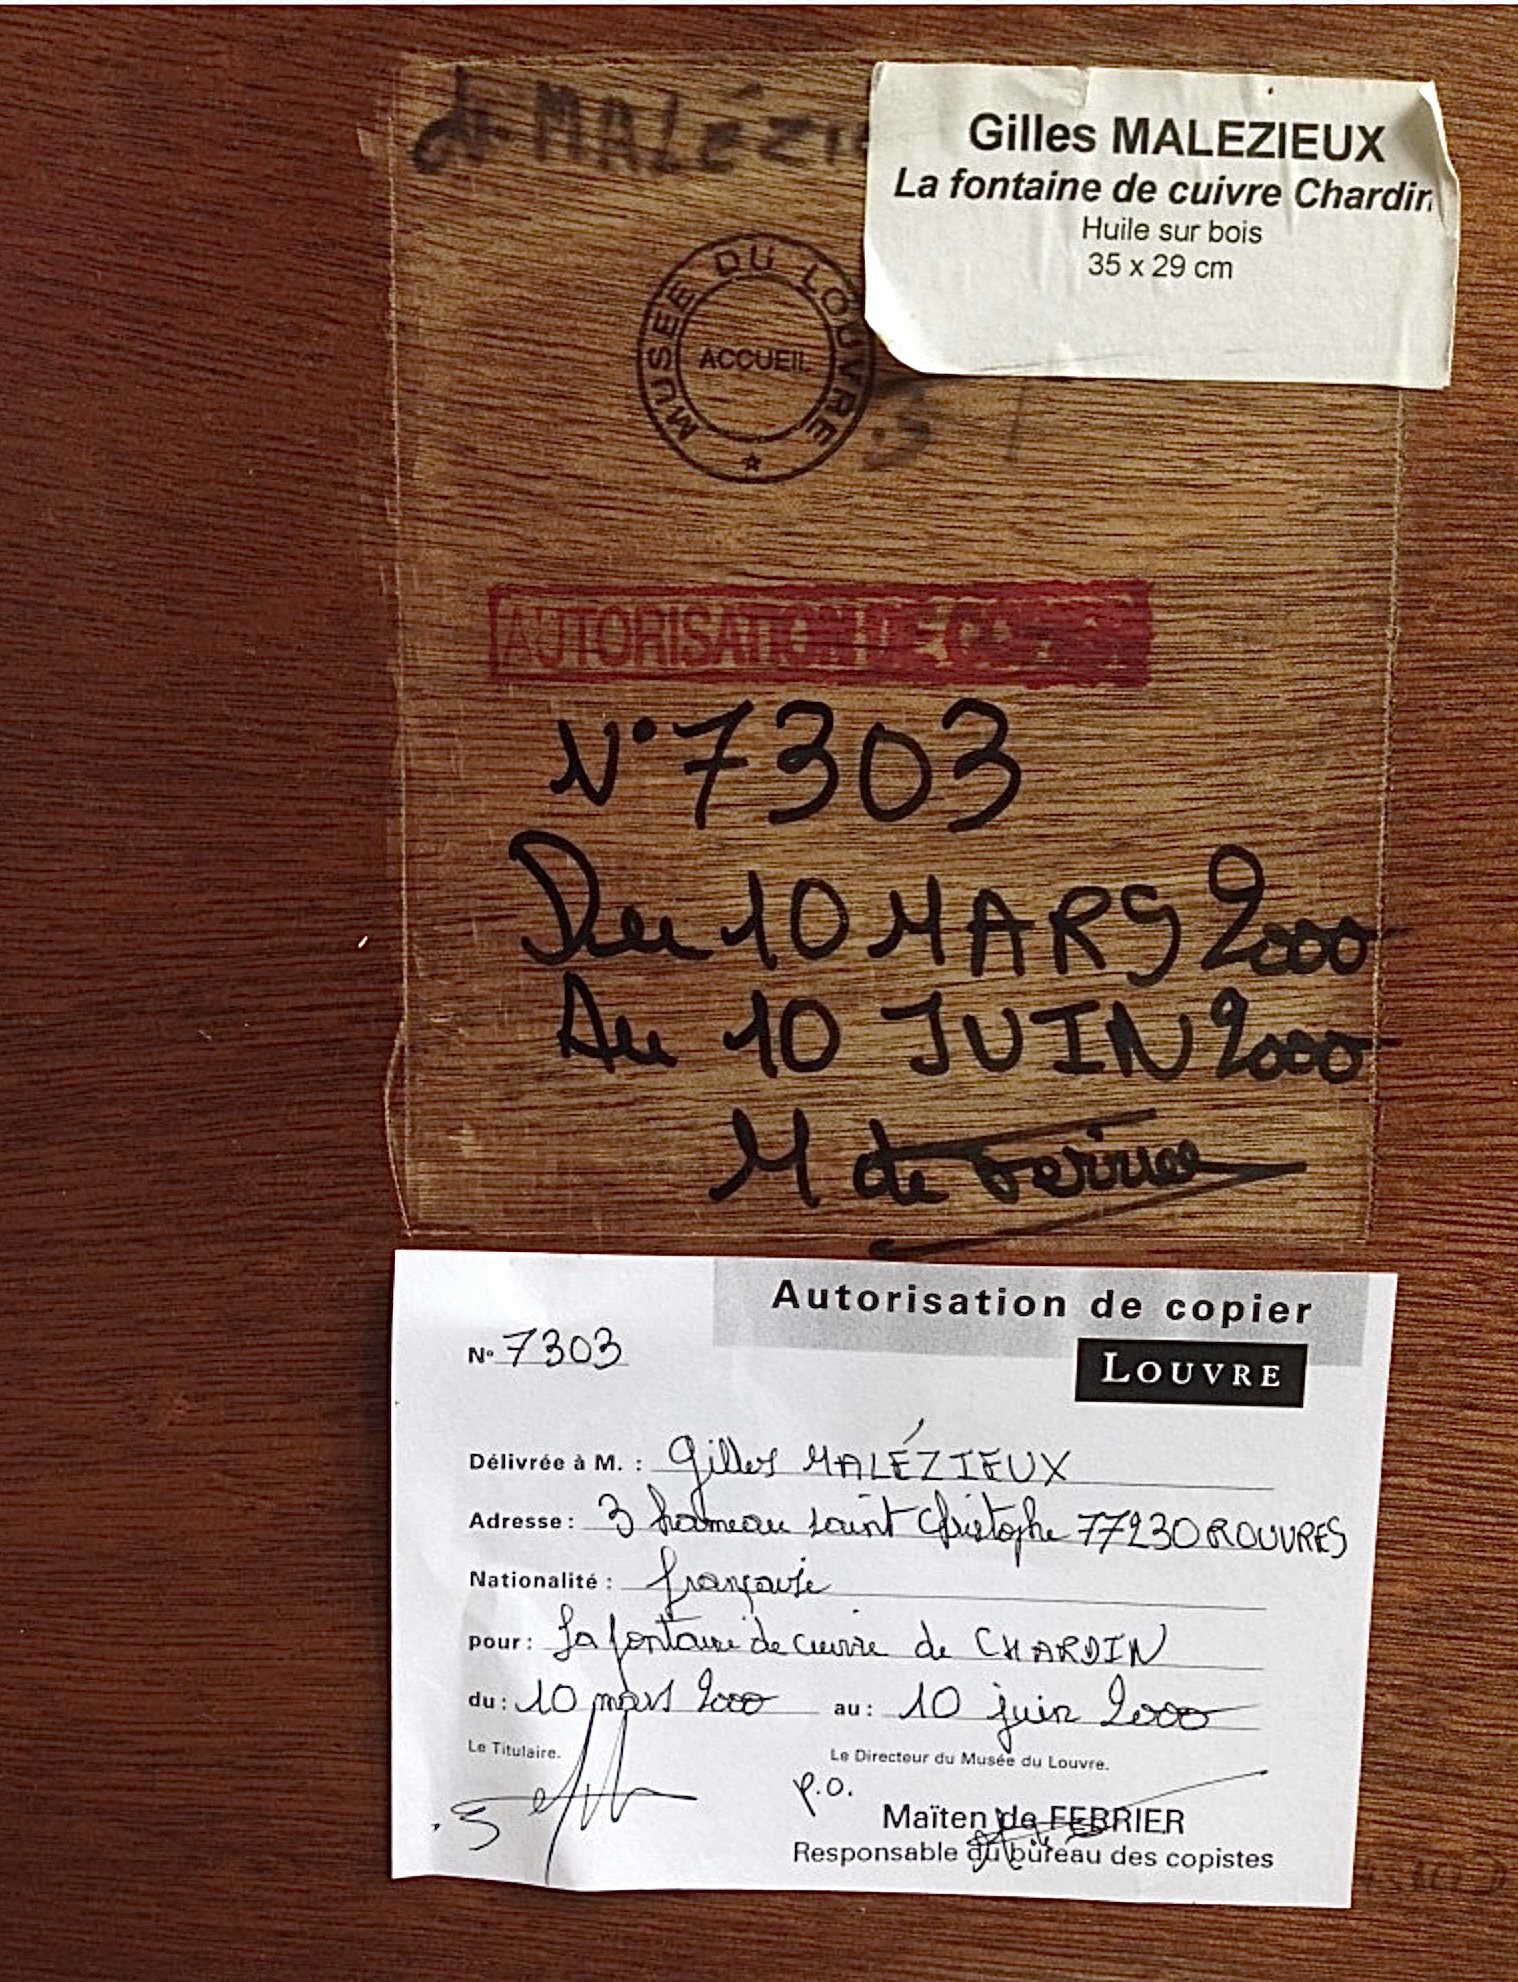 MALÉZIE
Gilles MALEZIEUX
La fontaine de cuivre Chardin
Huile sur bois
35 x 29 cm
MUSEE DU LOUVRE
ACCUEIL
AUTORISATION DE COPIER
N° 7303
Du 10 MARS 2000
Au 10 JUIN 2000
M de Ferrier
Autorisation de copier
LOUVRE
N° 7303
Délivrée à M. : Gilles MALÉZIEUX
Adresse : 3 hameau saint Christophe 77230 ROUVRES
Nationalité : française
pour : La fontaine de cuivre de CHARDIN
du : 10 mars 2000 au : 10 juin 2000
Le Titulaire. Le Directeur du Musée du Louvre.
P.O.
Maïten de FERRIER
Responsable du bureau des copistes